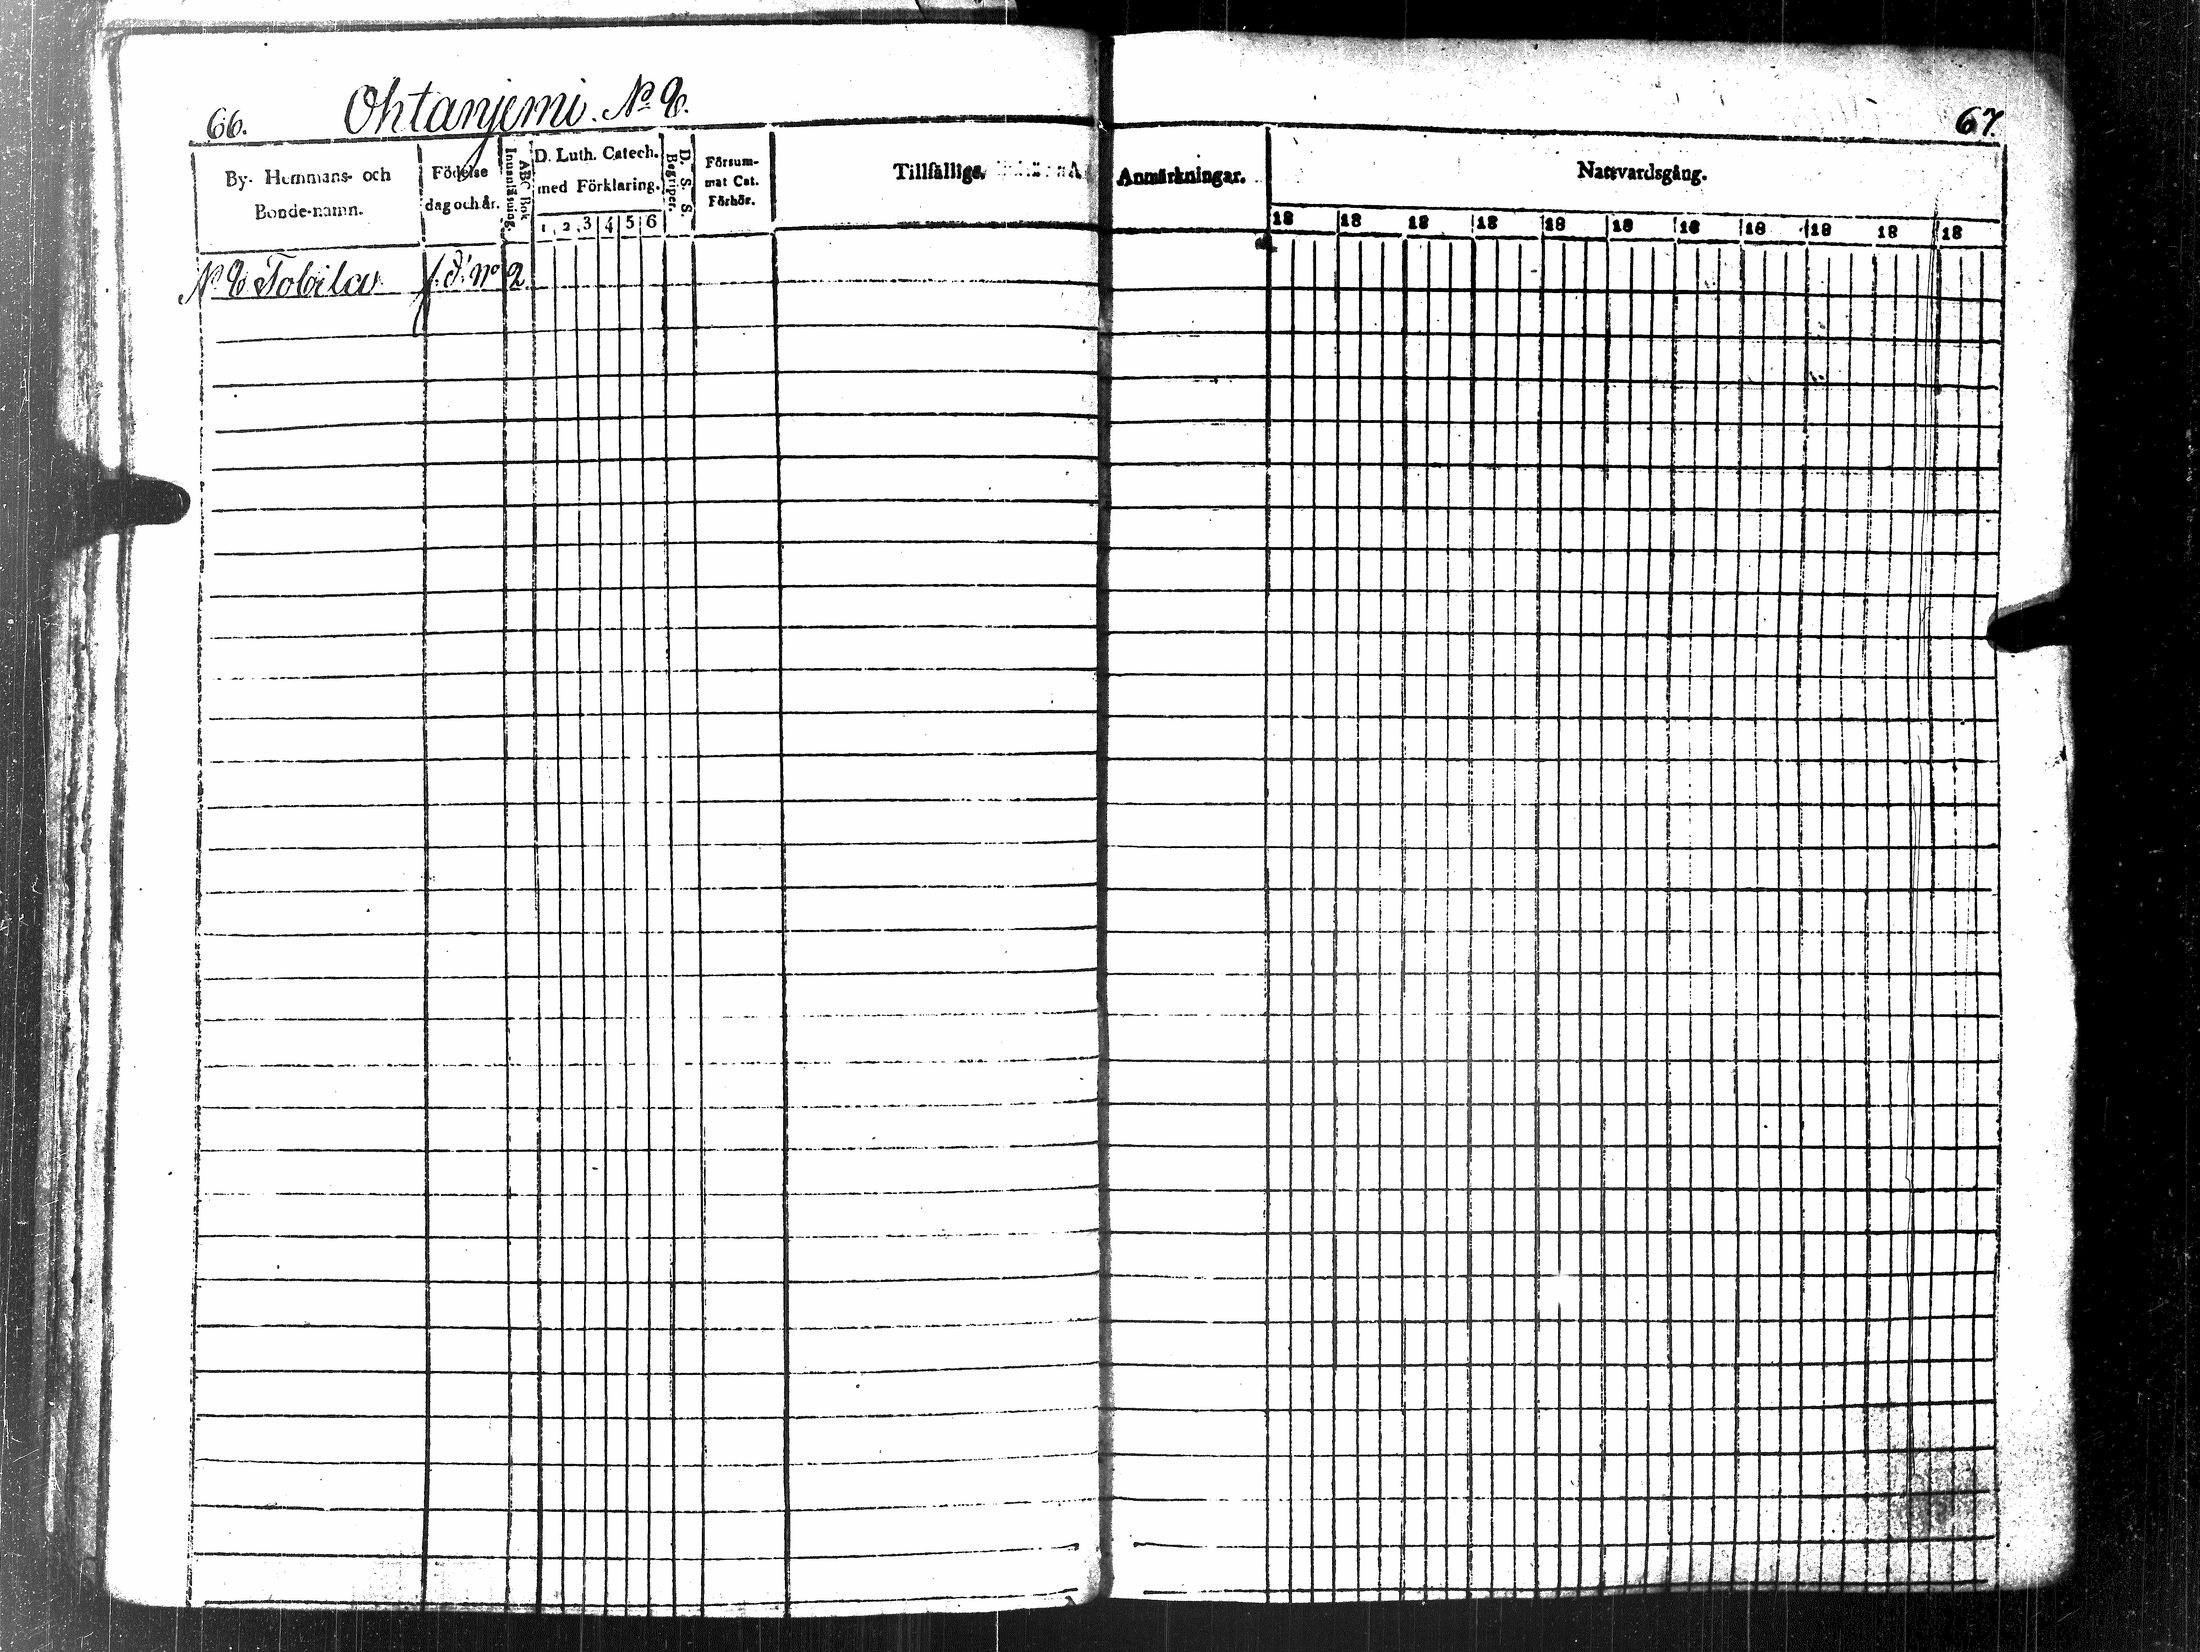 66. Ohtanjemi. No 8.
By- Hemmans- och
Bonde-namn.
Födelse
dag och år.
Innanläsning.
ABC Bok
D. Luth. Catech.
med Förklaring.
1 2 3 4 5 6
D. S. S.
Begriper.
Försum-
mat Cat.
Förhör.
Tillfällige
No 8 Tobila
No 2
67.
Anmärkningar.
Nattvardsgång.
18 18 18 18 18 18 18 18 18 18 18